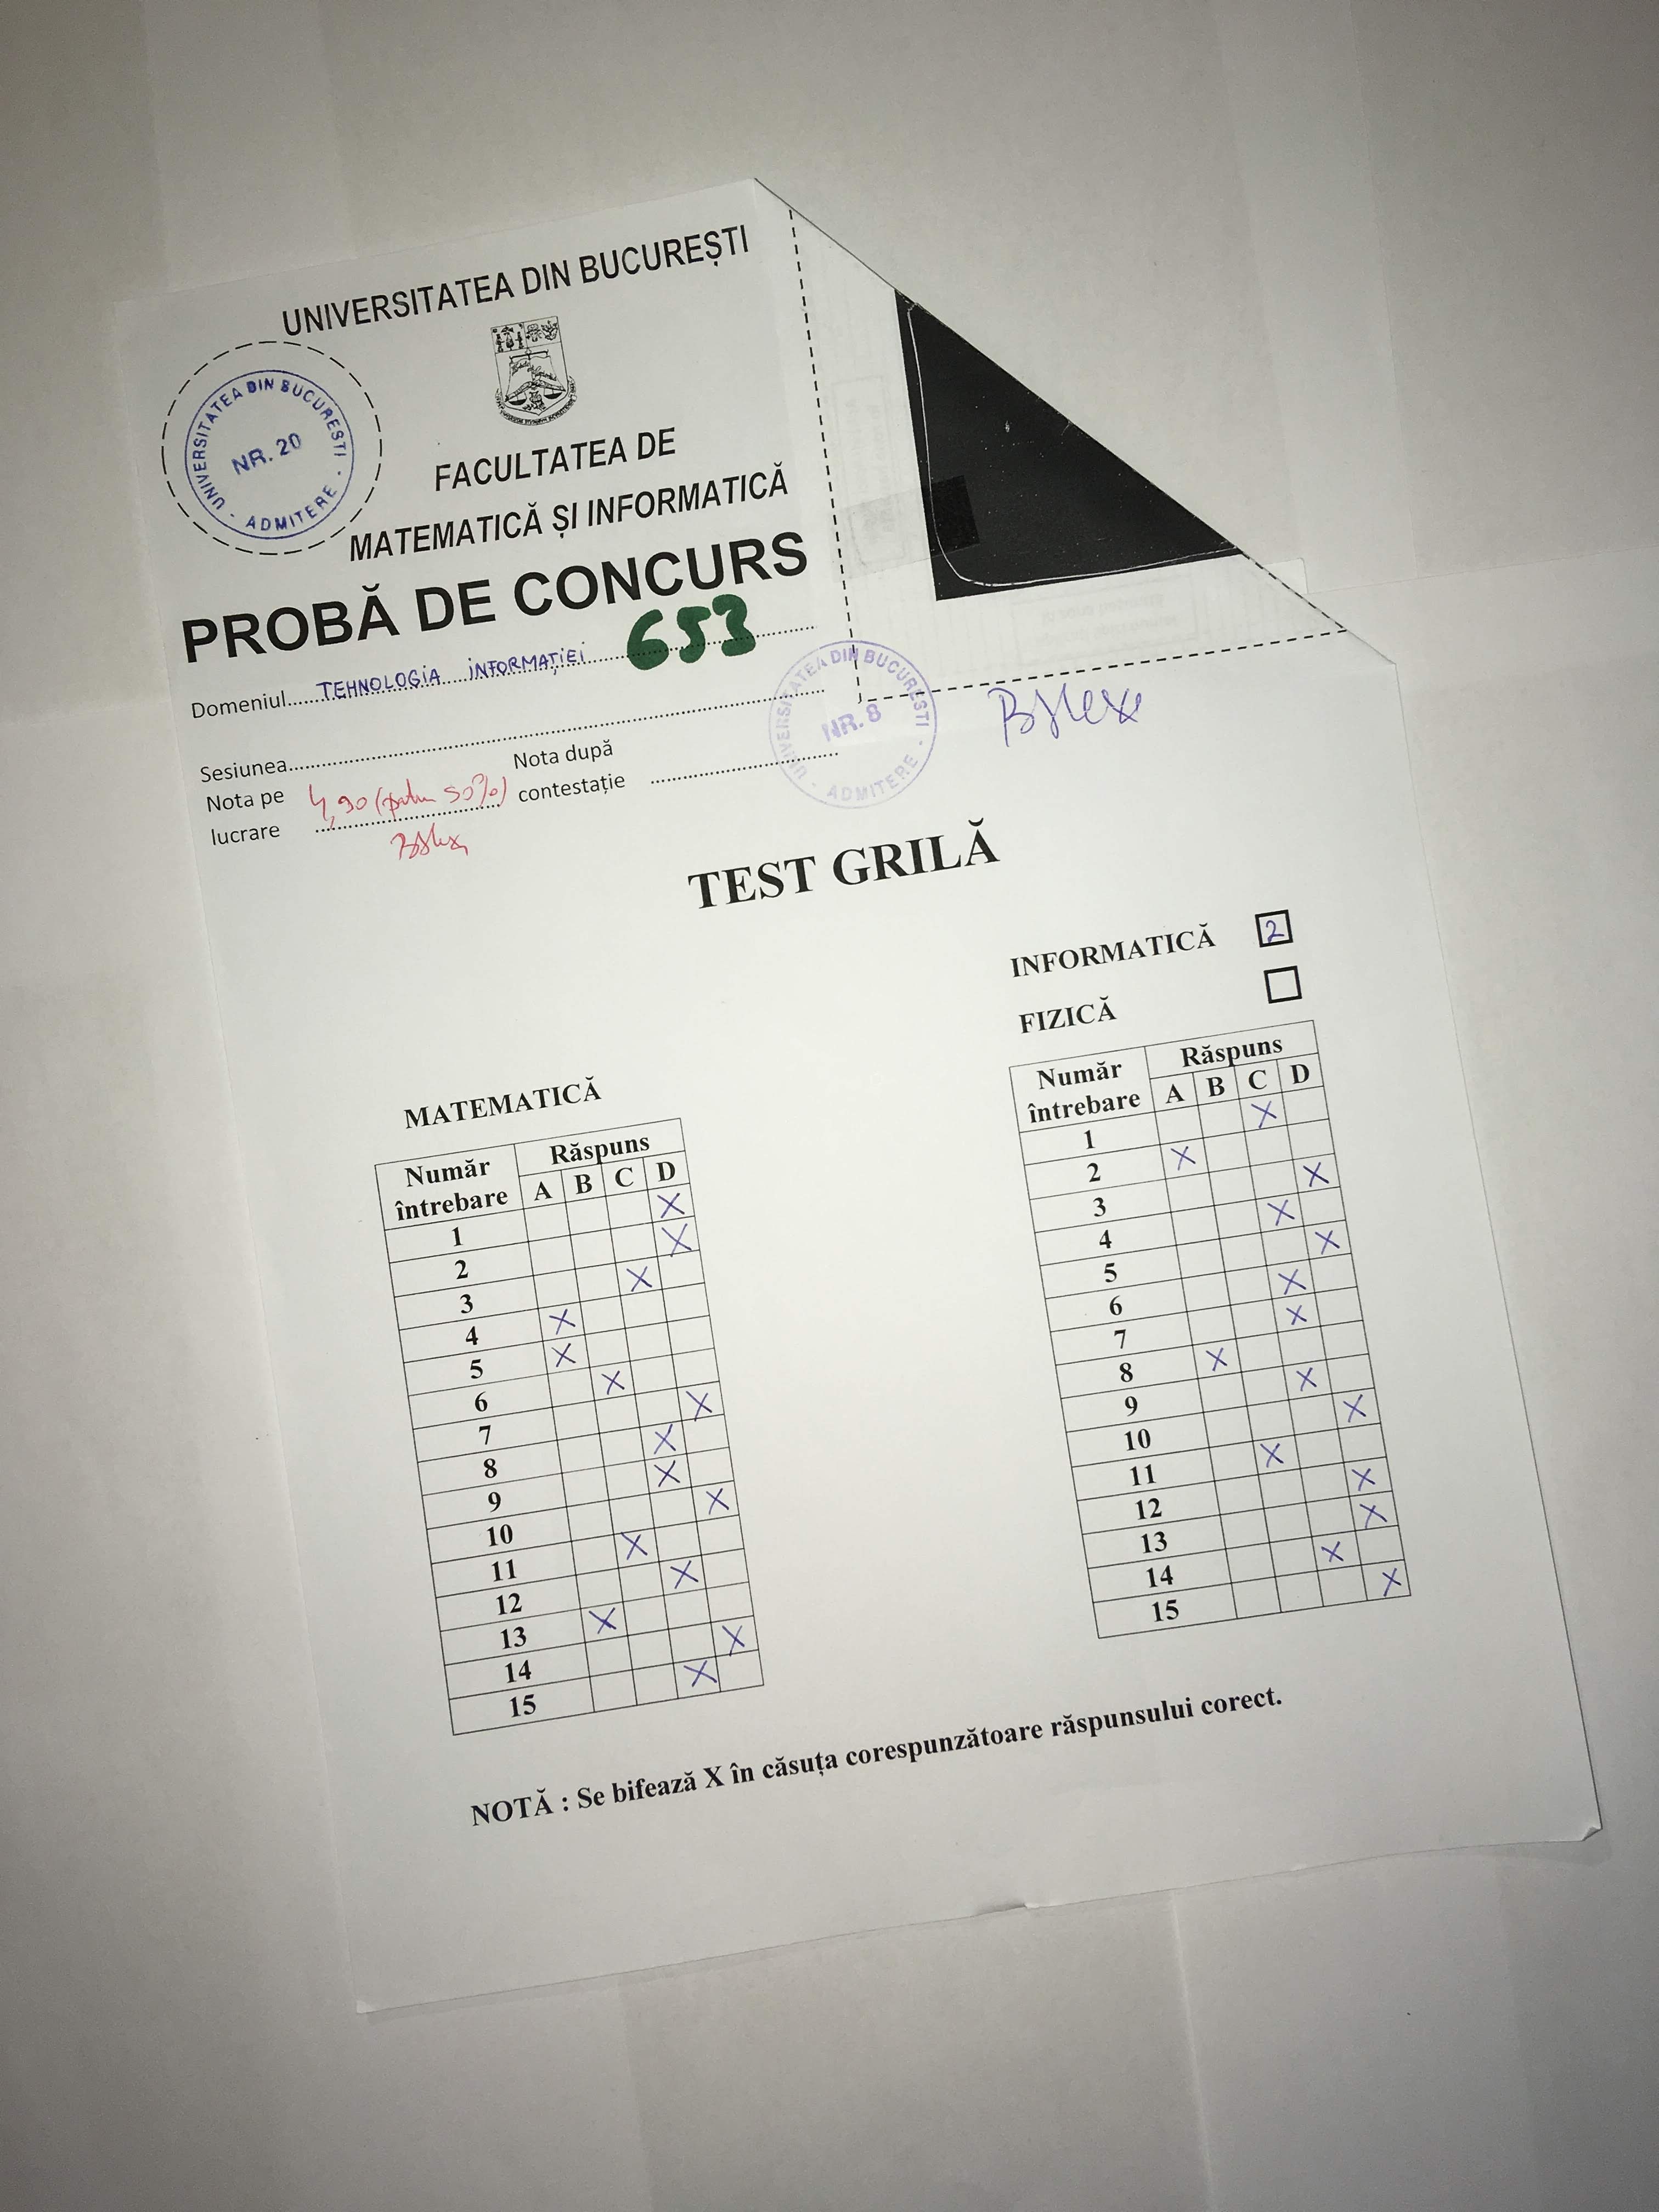 UNIVERSITATEA DIN BUCUREȘTI
UNIVERSITATEA DIN BUCURESTI - ADMITERE -
NR. 20
FACULTATEA DE
MATEMATICĂ ȘI INFORMATICĂ
PROBĂ DE CONCURS
653
Domeniul...... TEHNOLOGIA INFORMAȚIEI ......
Sesiunea......
UNIVERSITATEA DIN BUCURESTI - ADMITERE -
NR. 8
Nota pe lucrare 4,90 (pentru 50%)
Nota după contestație ......
TEST GRILĂ
INFORMATICĂ 2
FIZICĂ
MATEMATICĂ
Număr întrebare Răspuns
A B C D
1 X
2 X
3 X
4 X
5 X
6 X
7 X
8 X
9 X
10 X
11 X
12 X
13 X
14 X
15 X
Număr întrebare Răspuns
A B C D
1 X
2 X
3 X
4 X
5 X
6 X
7 X
8 X
9 X
10 X
11 X
12 X
13 X
14 X
15 X
NOTĂ : Se bifează X în căsuța corespunzătoare răspunsului corect.